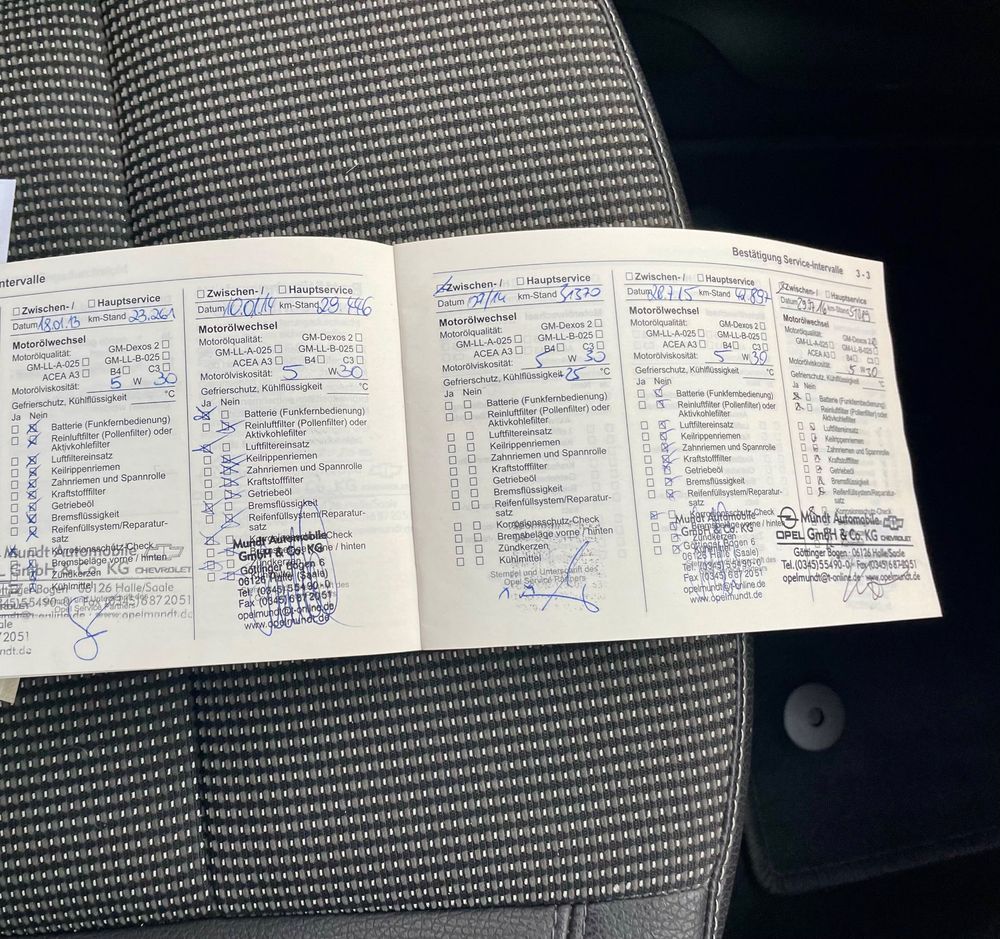 ntervalle
Zwischen- / Hauptservice
Datum 18.01.13 km-Stand 23.261
Motorölwechsel
Motorölqualität:
GM-Dexos 2
GM-LL-A-025 GM-LL-B-025
ACEA A3 B4 C3
Motorölviskosität: 5 W 30
Gefrierschutz, Kühlflüssigkeit °C
Ja Nein
Batterie (Funkfernbedienung)
Reinluftfilter (Pollenfilter) oder
Aktivkohlefilter
Luftfiltereinsatz
Keilrippenriemen
Zahnriemen und Spannrolle
Kraftstofffilter
Getriebeöl
Bremsflüssigkeit
Reifenfüllsystem/Reparatur-
satz
Korrosionsschutz-Check
Bremsbeläge vorne / hinten
Zündkerzen
Kühlmittel
Mundt Automobile
GmbH & Co. KG CHEVROLET
06126 Halle/Saale
Zwischen- / Hauptservice
Datum 10.01.14 km-Stand 29.446
Motorölwechsel
Motorölqualität:
GM-Dexos 2
GM-LL-A-025 GM-LL-B-025
ACEA A3 B4 C3
Motorölviskosität: 5 W 30
Gefrierschutz, Kühlflüssigkeit °C
Ja Nein
Batterie (Funkfernbedienung)
Reinluftfilter (Pollenfilter) oder
Aktivkohlefilter
Luftfiltereinsatz
Keilrippenriemen
Zahnriemen und Spannrolle
Kraftstofffilter
Getriebeöl
Bremsflüssigkeit
Reifenfüllsystem/Reparatur-
satz
Mundt Automobile
GmbH & Co. KG
Göttinger Bogen 6
06126 Halle (Saale)
Tel. (0345) 55490-0
Fax (0345) 6872051
opelmundt@t-online.de
www.opelmundt.de
Bestätigung Service-Intervalle 3-3
Zwischen- / Hauptservice
Datum km-Stand 31870
Motorölwechsel
Motorölqualität:
GM-Dexos 2
GM-LL-A-025 GM-LL-B-025
ACEA A3 B4 C3
Motorölviskosität: 5 W 30
Gefrierschutz, Kühlflüssigkeit -25 °C
Ja Nein
Batterie (Funkfernbedienung)
Reinluftfilter (Pollenfilter) oder
Aktivkohlefilter
Luftfiltereinsatz
Keilrippenriemen
Zahnriemen und Spannrolle
Kraftstofffilter
Getriebeöl
Bremsflüssigkeit
Reifenfüllsystem/Reparatur-
satz
Korrosionsschutz-Check
Bremsbeläge vorne / hinten
Zündkerzen
Kühlmittel
Stempel und Unterschrift des
Opel Service Partners
Zwischen- / Hauptservice
Datum 28.7.15 km-Stand 42.897
Motorölwechsel
Motorölqualität:
GM-Dexos 2
GM-LL-A-025 GM-LL-B-025
ACEA A3 B4 C3
Motorölviskosität: 5 W 30
Gefrierschutz, Kühlflüssigkeit °C
Ja Nein
Batterie (Funkfernbedienung)
Reinluftfilter (Pollenfilter) oder
Aktivkohlefilter
Luftfiltereinsatz
Keilrippenriemen
Zahnriemen und Spannrolle
Kraftstofffilter
Getriebeöl
Bremsflüssigkeit
Reifenfüllsystem/Reparatur-
satz
Korrosionsschutz-Check
Bremsbeläge vorne / hinten
Mundt Automobile
GmbH & Co. KG
Göttinger Bogen 6
06126 Halle (Saale)
Tel. (0345) 55490-0
Fax (0345) 6872051
opelmundt@t-online.de
www.opelmundt.de
Zwischen- / Hauptservice
Datum km-Stand
Motorölwechsel
Motorölqualität:
GM-Dexos 2
GM-LL-A-025 GM-LL-B-025
ACEA A3 B4 C3
Motorölviskosität: 5 W 30
Gefrierschutz, Kühlflüssigkeit °C
Ja Nein
Batterie (Funkfernbedienung)
Reinluftfilter (Pollenfilter) oder
Aktivkohlefilter
Luftfiltereinsatz
Keilrippenriemen
Zahnriemen und Spannrolle
Kraftstofffilter
Getriebeöl
Bremsflüssigkeit
Reifenfüllsystem/Reparatur-
satz
Korrosionsschutz-Check
Mundt Automobile
OPEL GmbH & Co. KG CHEVROLET
Göttinger Bogen · 06126 Halle/Saale
Tel. (0345) 55490-0 · Fax (0345) 6872051
opelmundt@t-online.de · www.opelmundt.de